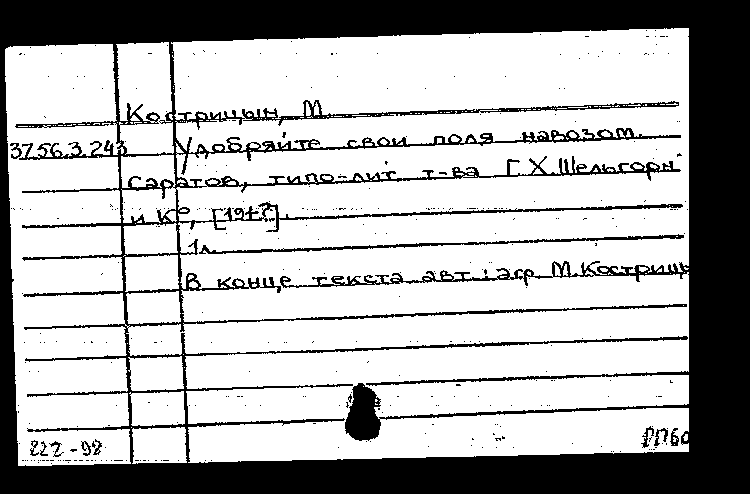 Кострицын, М.
37.56.3.243 Удобряйте свои поля навозом.
Саратов, типо-лит. т-ва Г.Х.Шельгорн
и К°, [191-?].
1л.
В конце текста авт.: агр. М.Кострицы
222-98